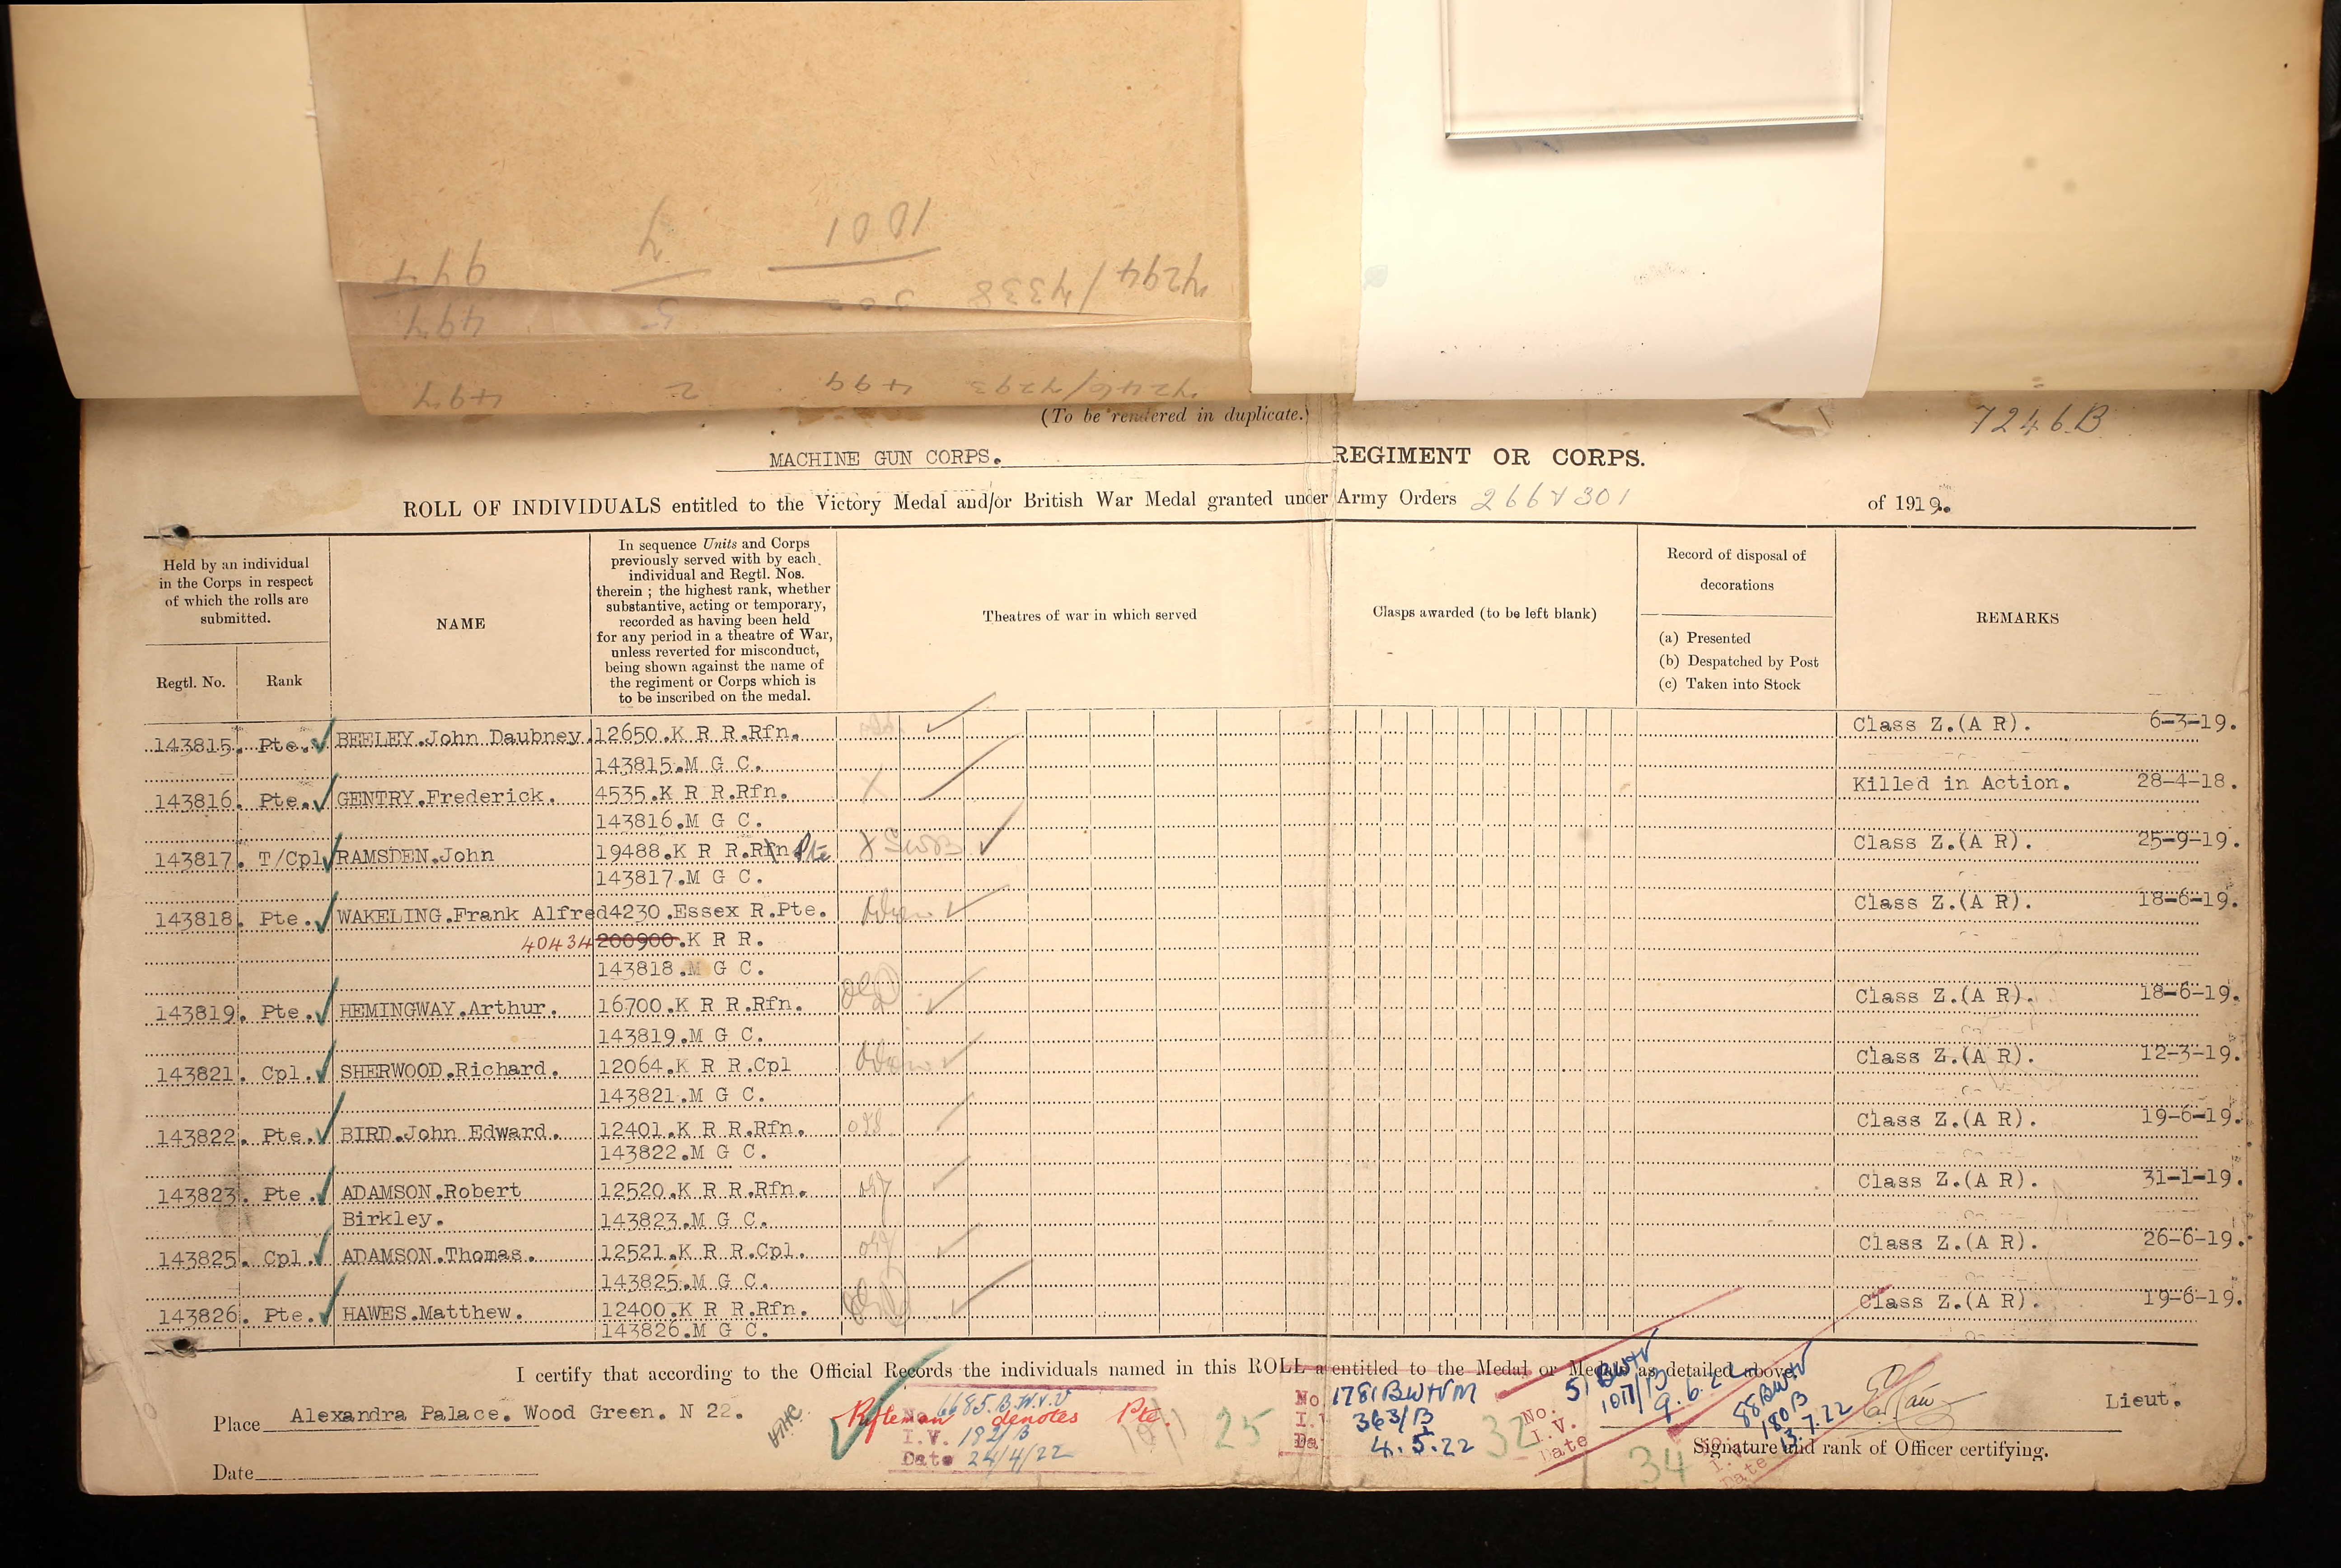 1001
7
994
7294/7338
502
5
497
7246/7293
499
2
497
(To be rendered in duplicate.)
7246.B
MACHINE GUN CORPS. REGIMENT OR CORPS.
ROLL OF INDIVIDUALS entitled to the Victory Medal and/or British War Medal granted under Army Orders 266 & 301 of 1919.
Held by an individual
in the Corps in respect
of which the rolls are
submitted.
Regtl. No. Rank
NAME
In sequence Units and Corps
previously served with by each
individual and Regtl. Nos.
therein ; the highest rank, whether
substantive, acting or temporary,
recorded as having been held
for any period in a theatre of War,
unless reverted for misconduct,
being shown against the name of
the regiment or Corps which is
to be inscribed on the medal.
Theatres of war in which served
Clasps awarded (to be left blank)
Record of disposal of
decorations
(a) Presented
(b) Despatched by Post
(c) Taken into Stock
REMARKS
143815. Pte. BEELEY.John Daubney. 12650.K R R.Rfn. Class Z.(A R). 6-3-19.
143815.M G C.
143816. Pte. GENTRY.Frederick. 4535.K R R.Rfn. X Killed in Action. 28-4-18.
143816.M G C.
143817. T/Cpl RAMSDEN.John 19488.K R R.Rfn Pte X Class Z.(A R). 25-9-19.
143817.M G C.
143818. Pte. WAKELING.Frank Alfred 4230.Essex R.Pte. Class Z.(A R). 18-6-19.
40434 200900.K R R.
143818.M G C.
143819. Pte. HEMINGWAY.Arthur. 16700.K R R.Rfn. Class Z.(A R). 18-6-19.
143819.M G C.
143821. Cpl. SHERWOOD.Richard. 12064.K R R.Cpl Class Z.(A R). 12-3-19.
143821.M G C.
143822. Pte. BIRD.John Edward. 12401.K R R.Rfn. Class Z.(A R). 19-6-19.
143822.M G C.
143823. Pte. ADAMSON.Robert 12520.K R R.Rfn. Class Z.(A R). 31-1-19.
Birkley. 143823.M G C.
143825. Cpl. ADAMSON.Thomas. 12521.K R R.Cpl. Class Z.(A R). 26-6-19.
143825.M G C.
143826. Pte. HAWES.Matthew. 12400.K R R.Rfn. Class Z.(A R). 19-6-19.
143826.M G C.
I certify that according to the Official Records the individuals named in this ROLL a entitled to the Medal or Medals as detailed above.
Place Alexandra Palace. Wood Green. N 22.
Date
No. 6685.B.W.V.V
Rifleman denotes Pte.
I.V. 182/B
Date 24/4/22
25
No 1781 BW&VM
I.V 363/B
Da 4.5.22
32
No. 51 BW&V
I.V. 1017/B
Date 9.6.22
34
No. 88 BW&V
I.V. 180B
Date 13.7.22
Lieut.
Signature and rank of Officer certifying.